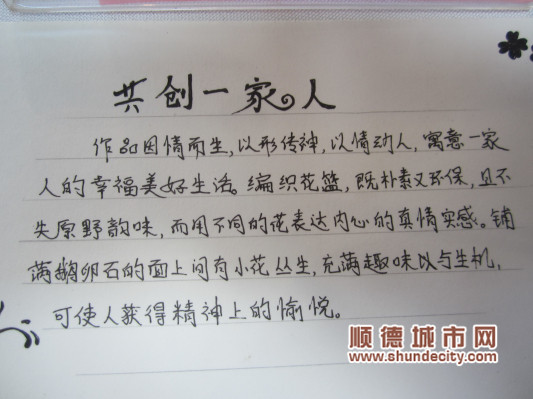 共创一家人
作品因情而生，以形传神，以情动人，寓意一家
人的幸福美好生活。编织花篮，既朴素又环保，且不
失原野韵味，而用不同的花表达内心的真情实感。铺
满鹅卵石的面上间有小花丛生，充满趣味以与生机，
可使人获得精神上的愉悦。
顺德城市网
www.shundecity.com